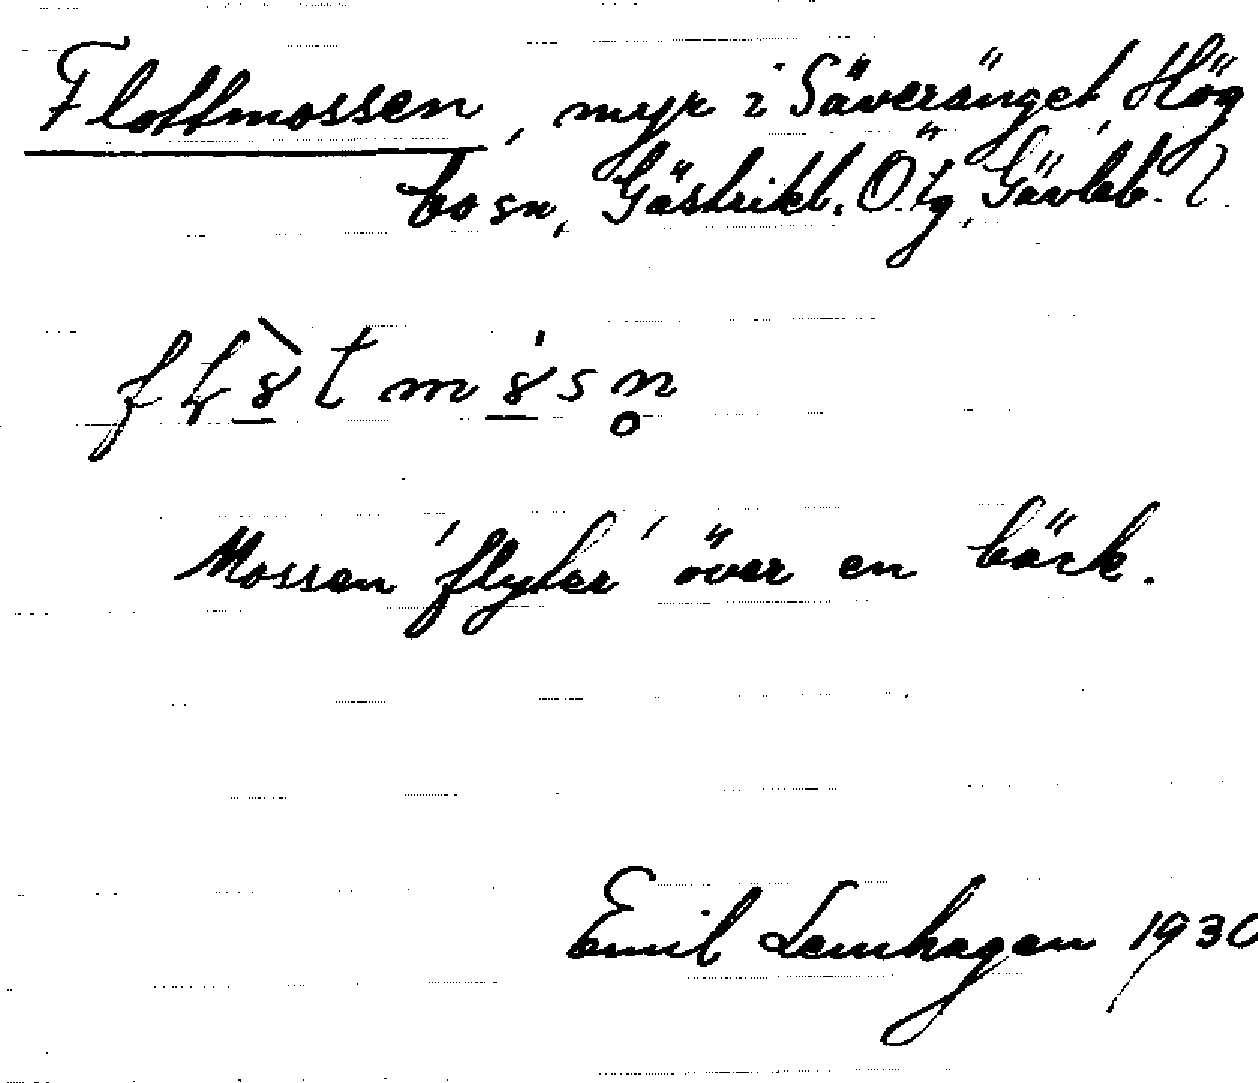 Flottmossen, myr i Säveränget, Hög
bo sn, Gästrikl. Ötg, Gävleb. l.
Mossen 'flyter' över en bäck.
Emil Lemhagen 1930